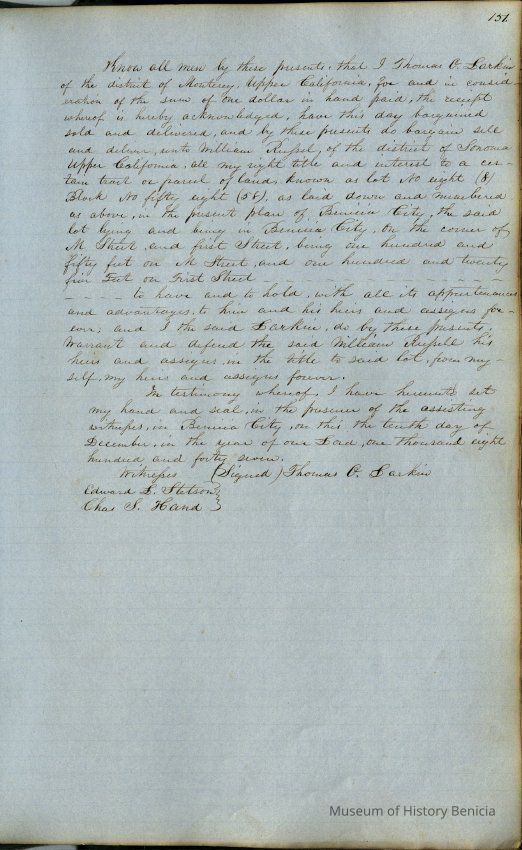 151.
Know all men by these presents, that I Thomas O. Larkin
of the district of Monterey, Upper California, for and in consid-
eration of the sum of one dollar in hand paid, the receipt
whereof is hereby acknowledged, have this day bargained
sold and delivered, and by these presents do bargain sell
and deliver, unto William Russel, of the district of Sonoma
Upper California, all my right title and interest to a cer-
tain tract or parcel of land, known as lot No eight (8)
Block No fifty eight (58), as laid down and numbered
as above, in the present plan of Benicia City, the said
lot lying and being in Benicia City, on the corner of
M Street and first Street, being one hundred and
fifty feet on M Street, and one hundred and twenty
five Feet on First Street
to have and to hold, with all its appurtenances
and advantages, to him and his heirs and assigns for-
ever; and I the said Larkin, do by these presents,
Warrant and defend the said William Russell his
heirs and assigns, in the title to said lot, from my-
self, my heirs and assigns forever.
In testimony whereof, I have hereunto set
my hand and seal, in the presence of the assisting
witnesses, in Benicia City, on this the tenth day of
December, in the year of our Lord, one thousand eight
hundred and forty seven.
Witnesses (Signed) Thomas O. Larkin
Edward L. Stetson
Chas S. Hand
Museum of History Benicia